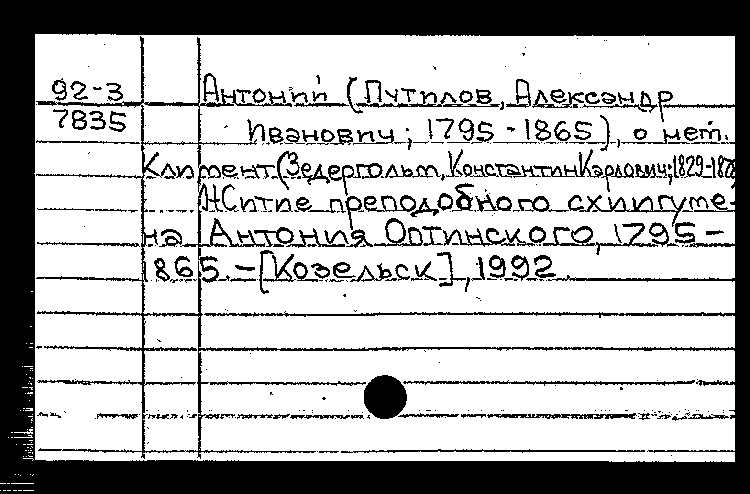 92-3 Антоний (Путилов, Александр
7835 Иванович; 1795-1865), о нем.
Климент (Зедергольм, Константин Карлович; 1829-1878)
Житие преподобного схиигуме-
на Антония Оптинского, 1795-
1865.-[Козельск], 1992.